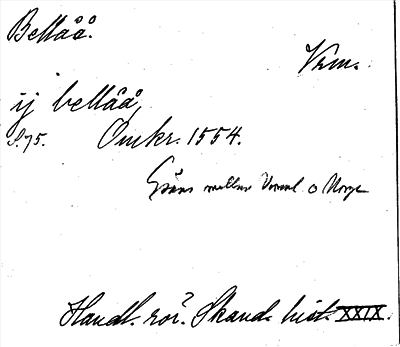 Bellåå.
Vrm.
ij bellåå
S. 75. Omkr. 1554.
Gräns mellan Verml o Norge
Handl. rör. Skand. hist. XXIX.